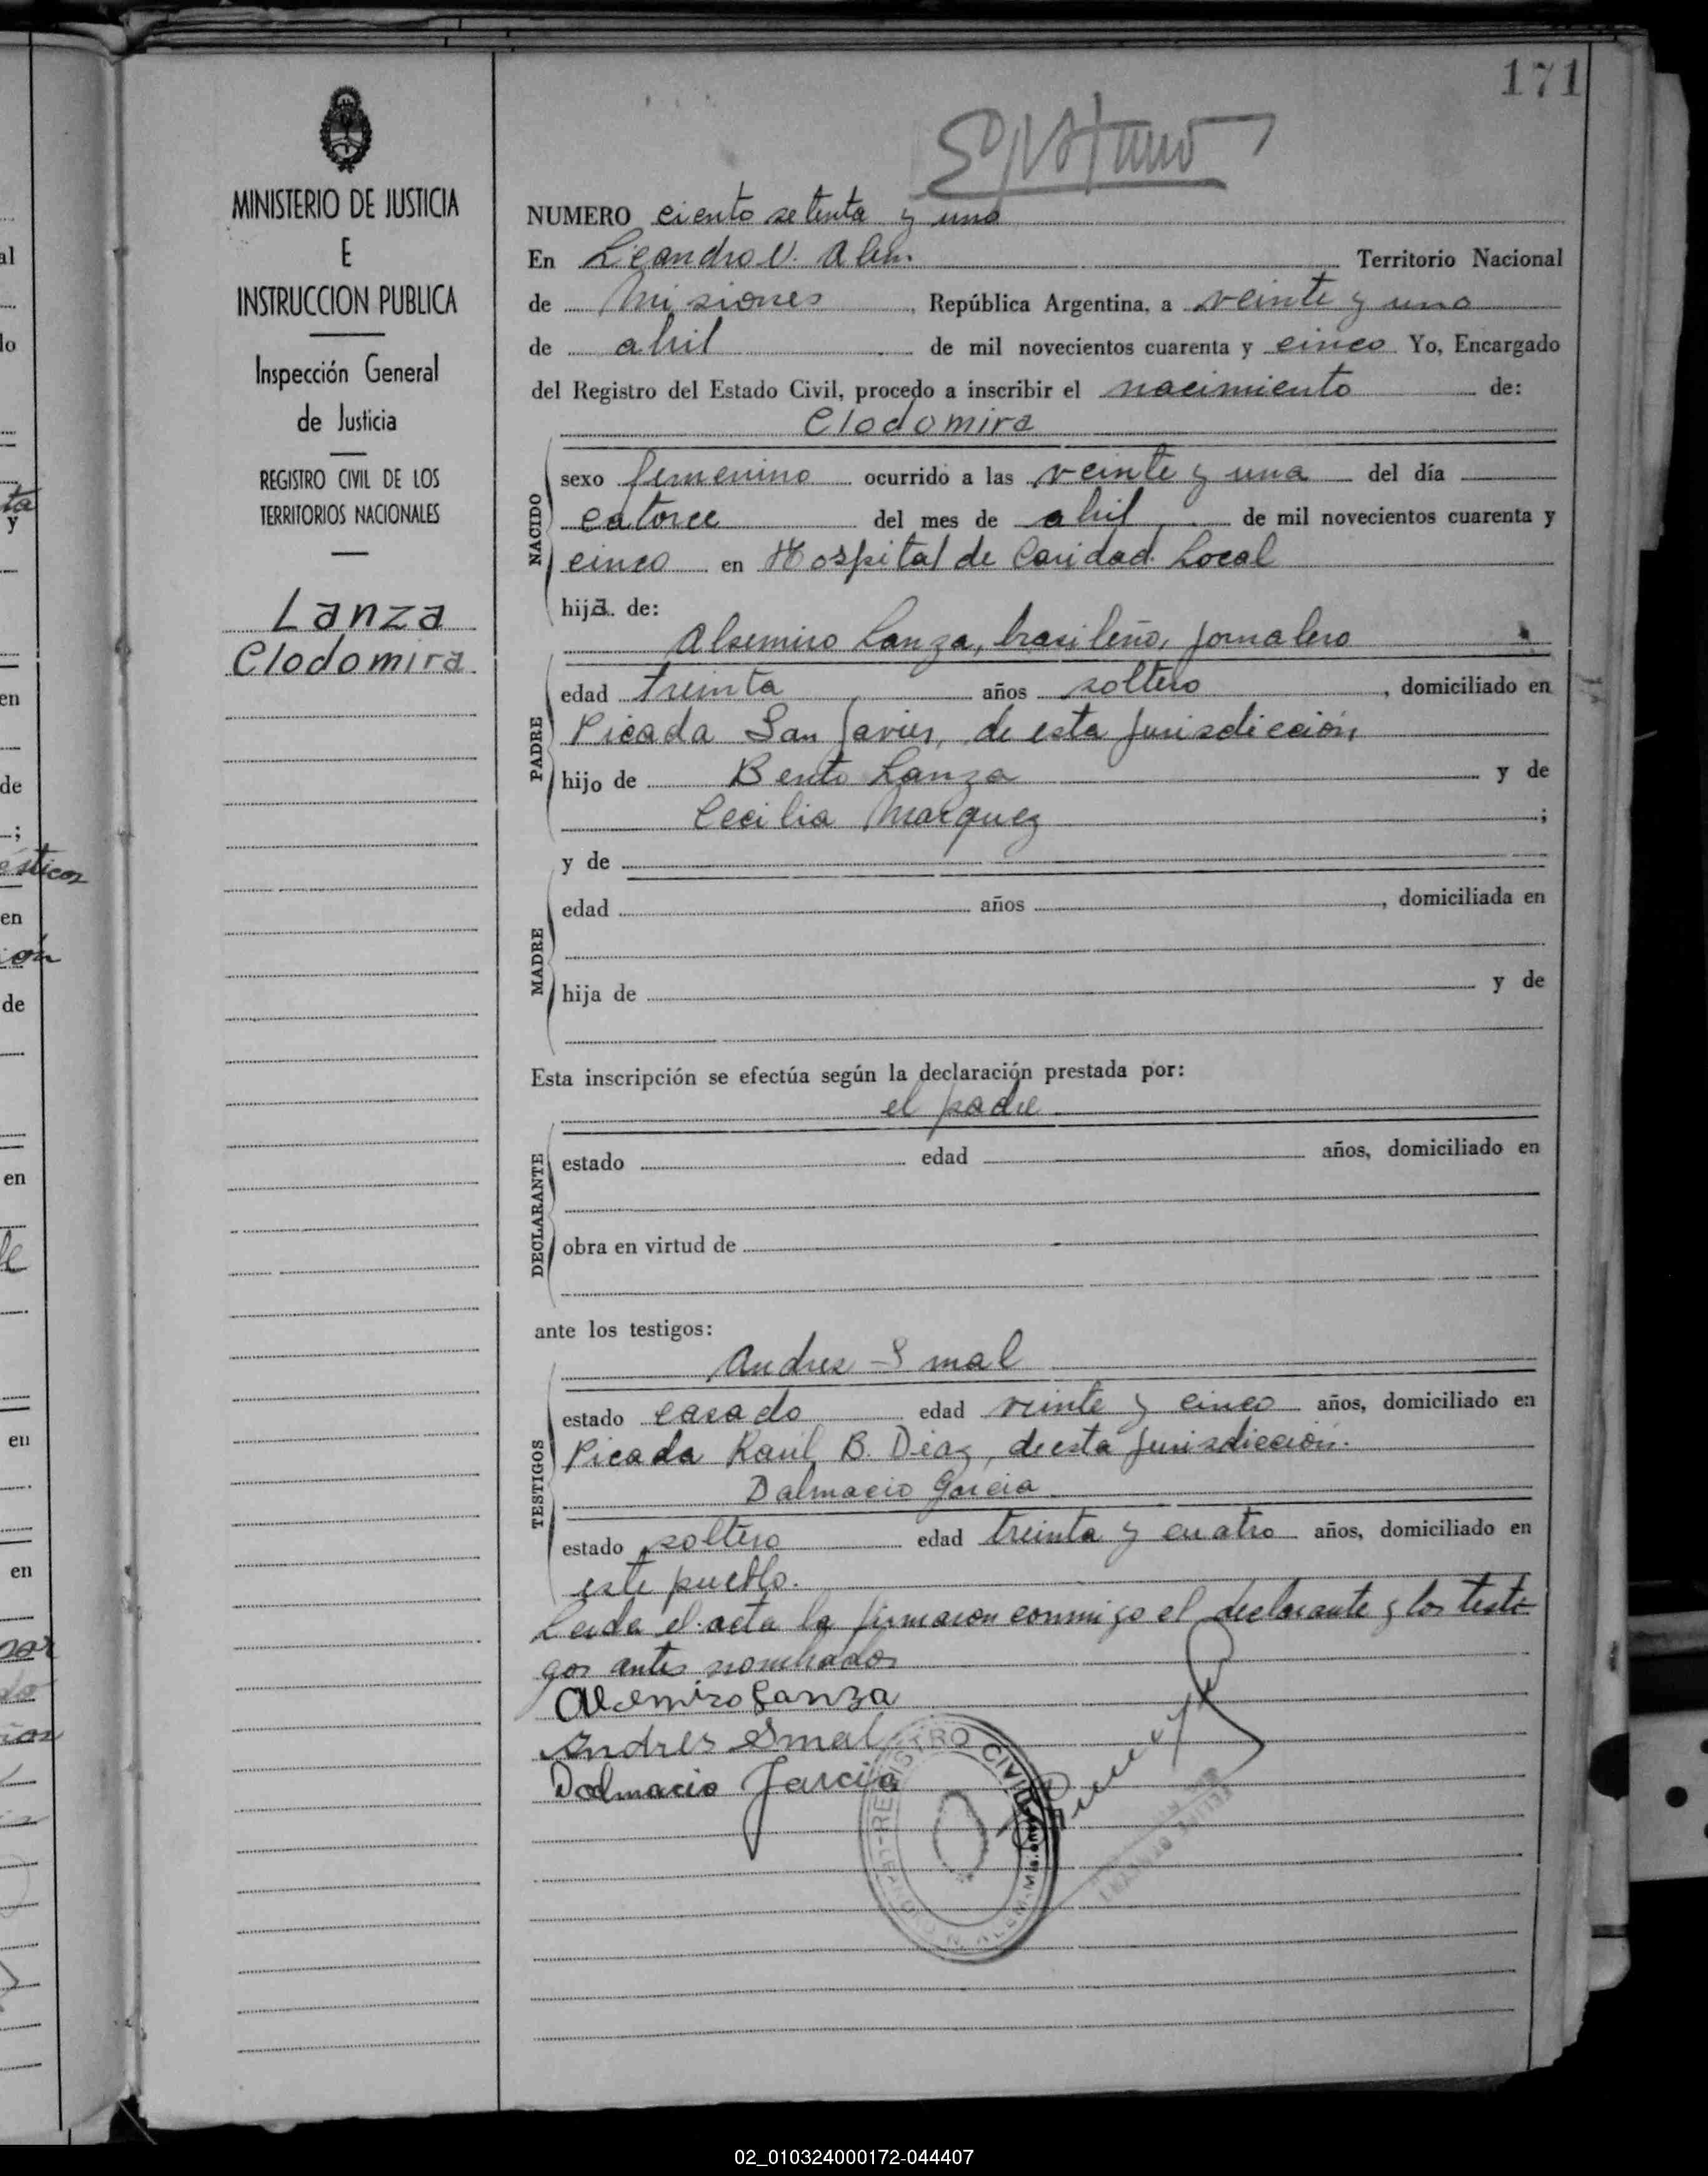 171
NUMERO ciento setenta y uno
En Leandro N. Alem. Territorio Nacional
de Misiones, República Argentina, a veinte y uno
de abril de mil novecientos cuarenta y cinco Yo, Encargado
del Registro del Estado Civil, procedo a inscribir el nacimiento de:
Clodomira
NACIDO
sexo femenino ocurrido a las veinte y una del día
catorce del mes de abril, de mil novecientos cuarenta y
cinco en Hospital de Caridad Local
hija. de:
PADRE
Alsemiro Lanza, brasileño, jornalero
edad treinta años soltero, domiciliado en
Picada San Javier, de esta jurisdicción,
hijo de Bento Lanza y de
Cecilia Marquez;
MADRE
y de
edad años, domiciliada en
hija de y de
Esta inscripción se efectúa según la declaración prestada por:
el padre
DECLARANTE
estado edad años, domiciliado en
obra en virtud de
ante los testigos:
TESTIGOS
Andres Smal
estado casado edad veinte y cinco años, domiciliado en
Picada Raúl B. Diaz, de esta jurisdicción.
Dalmacio Garcia
estado soltero edad treinta y cuatro años, domiciliado en
este pueblo.
Leida el acta la firmaron conmigo el declarante y los testi
gos antes nombrados
Lanza
Andres Smal
Dalmacio Garcia
REGISTRO CIVIL
MINISTERIO DE JUSTICIA
E
INSTRUCCION PUBLICA
Inspección General
de Justicia
REGISTRO CIVIL DE LOS
TERRITORIOS NACIONALES
Lanza
Clodomira
al
lo
ta
y
en
de
;
ésticos
en
ión
de
en
en
en
02_010324000172-044407